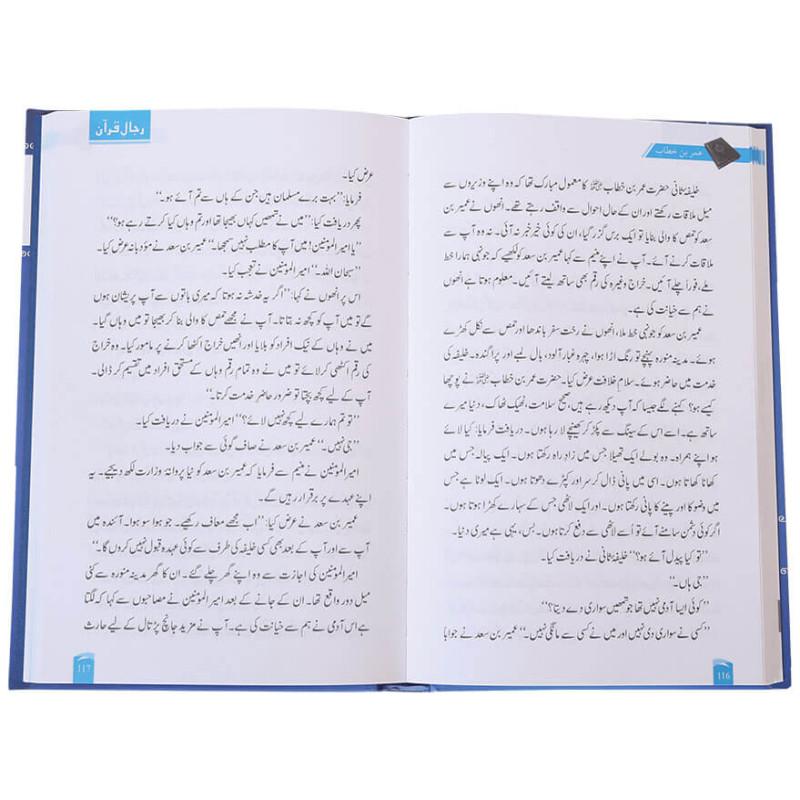 عمر بن خطاب
خلیفۂ ثانی حضرت عمر بن خطاب ؓ کا معمول مبارک تھا کہ وہ اپنے وزیروں سے
میل ملاقات رکھتے اور ان کے حال احوال سے واقف رہتے تھے۔ انھوں نے عمیر بن
سعد کو حمص کا والی بنایا تو ایک برس گزر گیا، ان کی کوئی خیر خبر نہ آئی۔ نہ وہ آپ سے
ملاقات کرنے آئے۔ آپ نے اپنے منیم سے کہا عمیر بن سعد کو لکھیے کہ جونہی ہمارا خط
ملے، فوراً چلے آئیں۔ خراج وغیرہ کی رقم بھی ساتھ لیتے آئیں۔ معلوم ہوتا ہے انھوں
نے ہم سے خیانت کی ہے۔
عمیر بن سعد کو جونہی خط ملا، انھوں نے رختِ سفر باندھا اور حمص سے نکل کھڑے
ہوئے۔ مدینہ منورہ پہنچے تو رنگ اڑا ہوا، چہرہ غبار آلود، بال لمبے اور پراگندہ۔ خلیفہ کی
خدمت میں حاضر ہوئے۔ سلامِ خلافت عرض کیا۔ حضرت عمر بن خطاب ؓ نے پوچھا
کیسے ہو؟ کہنے لگے جیسا کہ آپ دیکھ رہے ہیں، صحیح سلامت، ٹھیک ٹھاک، دنیا میرے
ساتھ ہے۔ اسے اس کے سینگ سے پکڑ کر کھینچے لا رہا ہوں۔ دریافت فرمایا: کیا لائے
ہو اپنے ہمراہ۔ وہ بولے ایک تھیلا جس میں زادِ راہ رکھتا ہوں۔ ایک پیالہ جس میں
کھانا کھاتا ہوں۔ اسی میں پانی ڈال کر سر اور کپڑے دھوتا ہوں۔ ایک لوٹا ہے جس
میں وضو کا اور پینے کا پانی رکھتا ہوں۔ اور ایک لاٹھی جس کے سہارے کھڑا ہوتا ہوں۔
اگر کوئی دشمن سامنے آئے تو اُسے لاٹھی سے دفع کرتا ہوں۔ بس، یہی ہے میری دنیا۔
”تو کیا پیدل آئے ہو؟“ خلیفۂ ثانی نے دریافت کیا۔
”جی ہاں۔“
”کوئی ایسا آدمی نہیں تھا جو تمھیں سواری دے دیتا؟“
”کسی نے سواری دی نہیں اور میں نے کسی سے مانگی نہیں۔“ عمیر بن سعد نے جواباً
116
رجالِ قرآن
عرض کیا۔
فرمایا: ”بہت برے مسلمان ہیں جن کے ہاں سے تم آئے ہو۔“
پھر دریافت کیا: ”میں نے تمھیں کہاں بھیجا تھا اور تم وہاں کیا کرتے رہے ہو؟“
”یا امیر المؤمنین! میں آپ کا مطلب نہیں سمجھا۔“ عمیر بن سعد نے مؤدبانہ عرض کیا۔
”سبحان اللہ۔“ امیر المؤمنین نے تعجب کیا۔
اس پر انھوں نے کہا: ”اگر یہ خدشہ نہ ہوتا کہ میری باتوں سے آپ پریشان ہوں
گے تو میں آپ کو کچھ نہ بتاتا۔ آپ نے مجھے حمص کا والی بنا کر بھیجا تو میں وہاں گیا۔
میں نے وہاں کے نیک افراد کو بلایا اور انھیں خراج اکٹھا کرنے پر مامور کیا۔ وہ خراج
کی رقم اکٹھی کر لائے تو میں نے وہ تمام رقم وہاں کے مستحق افراد میں تقسیم کر ڈالی۔
آپ کے لیے کچھ بچتا تو ضرور حاضرِ خدمت کرتا۔“
”تو تم ہمارے لیے کچھ نہیں لائے؟“ امیر المؤمنین نے دریافت کیا۔
”جی نہیں۔“ عمیر بن سعد نے صاف گوئی سے جواب دیا۔
امیر المؤمنین نے منیم سے فرمایا کہ عمیر بن سعد کو نیا پروانۂ وزارت لکھ دیجیے۔ یہ
اپنے عہدے پر برقرار رہیں گے۔
عمیر بن سعد نے عرض کیا: ”اب مجھے معاف رکھیے۔ جو ہوا سو ہوا۔ آئندہ میں
آپ سے اور آپ کے بعد بھی کسی خلیفہ کی طرف سے کوئی عہدہ قبول نہیں کروں گا۔“
امیر المؤمنین کی اجازت سے وہ اپنے گھر چلے گئے۔ ان کا گھر مدینہ منورہ سے کئی
میل دور واقع تھا۔ ان کے جانے کے بعد امیر المؤمنین نے مصاحبوں سے کہا کہ لگتا
ہے اس آدمی نے ہم سے خیانت کی ہے۔ آپ نے مزید جانچ پڑتال کے لیے حارث
117